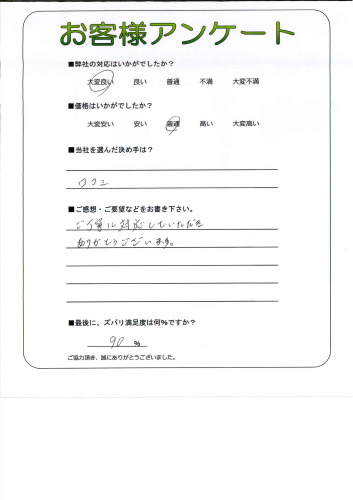 お客様アンケート
■弊社の対応はいかがでしたか？
大変良い 良い 普通 不満 大変不満
■価格はいかがでしたか？
大変安い 安い 普通 高い 大変高い
■当社を選んだ決め手は？
口コミ
■ご感想・ご要望などをお書き下さい。
ご丁寧に対応していただき
ありがとうございます。
■最後に、ズバリ満足度は何%ですか？
90 %
ご協力頂き、誠にありがとうございました。